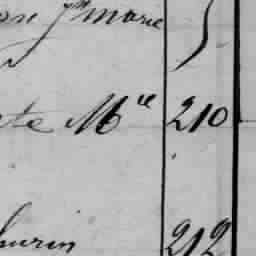 Jn marie
te Mlle 210
hurin 212